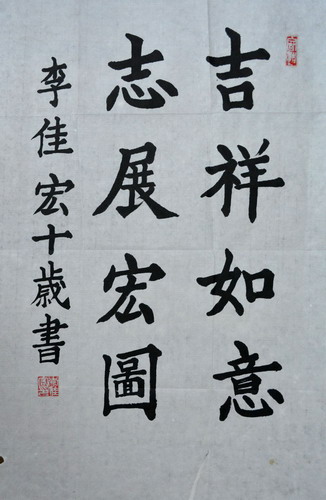 吉祥如意
志展宏圖
李佳宏十歲書